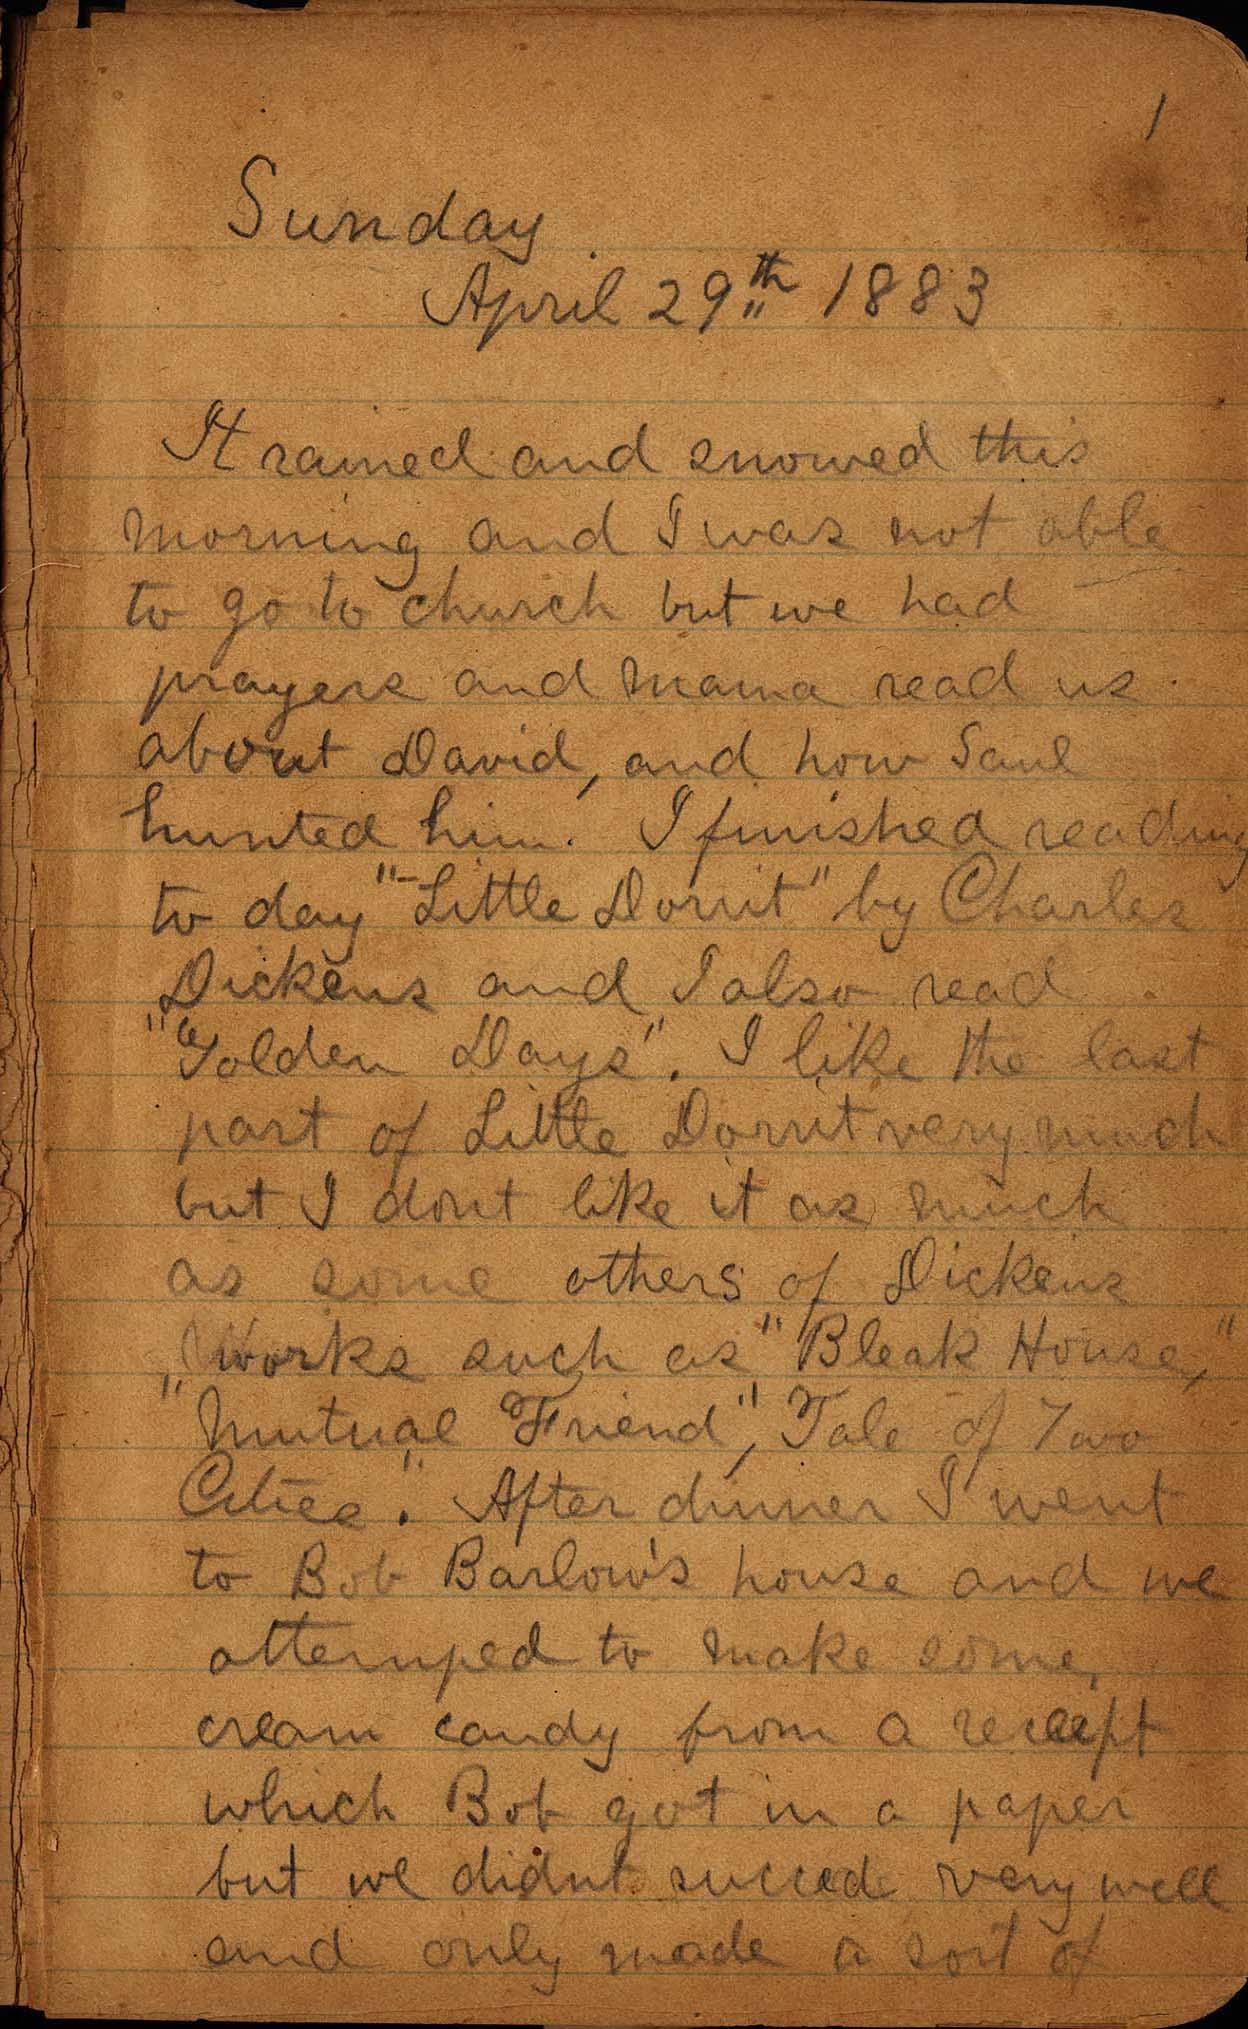 1
Sunday
April 29th 1883
It rained and snowed this
morning and I was not able
to go to church but we had
prayers and Mama read us
about David, and how Saul
hunted him. I finished reading
to day "Little Dorrit" by Charles
Dickens and I also read
"Golden Days". I like the last
part of Little Dorrit very much
but I dont like it as much
as some others of Dickens
works such as "Bleak House,"
"Mutual Friend", Tale of Two
Cities". After dinner I went
to Bob Barlow's house and we
attemped to make some
cream candy from a receept
which Bob got in a paper
but we didnt succed very well
and only made a sort of